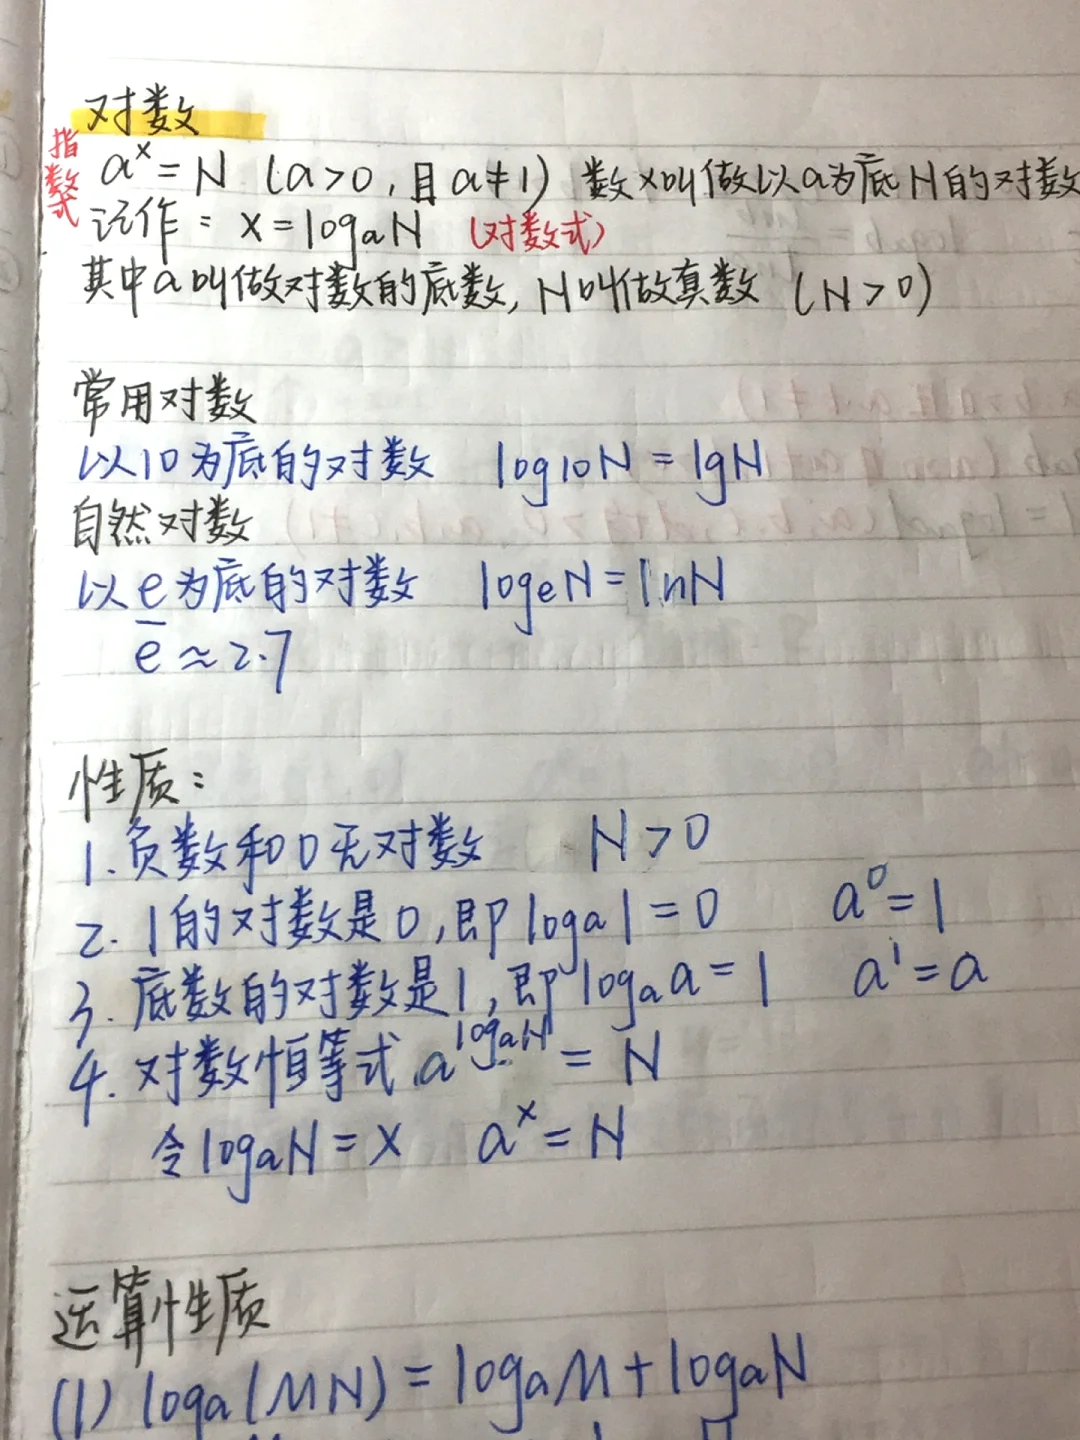 对数
指数式
aˣ = N (a>0, 且a≠1) 数x叫做以a为底N的对数
记作: x = logₐN (对数式)
其中a叫做对数的底数, N叫做真数 (N>0)
常用对数
以10为底的对数 log₁₀N = lgN
自然对数
以e为底的对数 logₑN = lnN
e ≈ 2.7
性质:
1. 负数和0无对数 N>0
2. 1的对数是0, 即logₐ1 = 0 a⁰ = 1
3. 底数的对数是1, 即logₐa = 1 a¹ = a
4. 对数恒等式 a^logₐN = N
令logₐN = x aˣ = N
运算性质
(1) logₐ(MN) = logₐM + logₐN